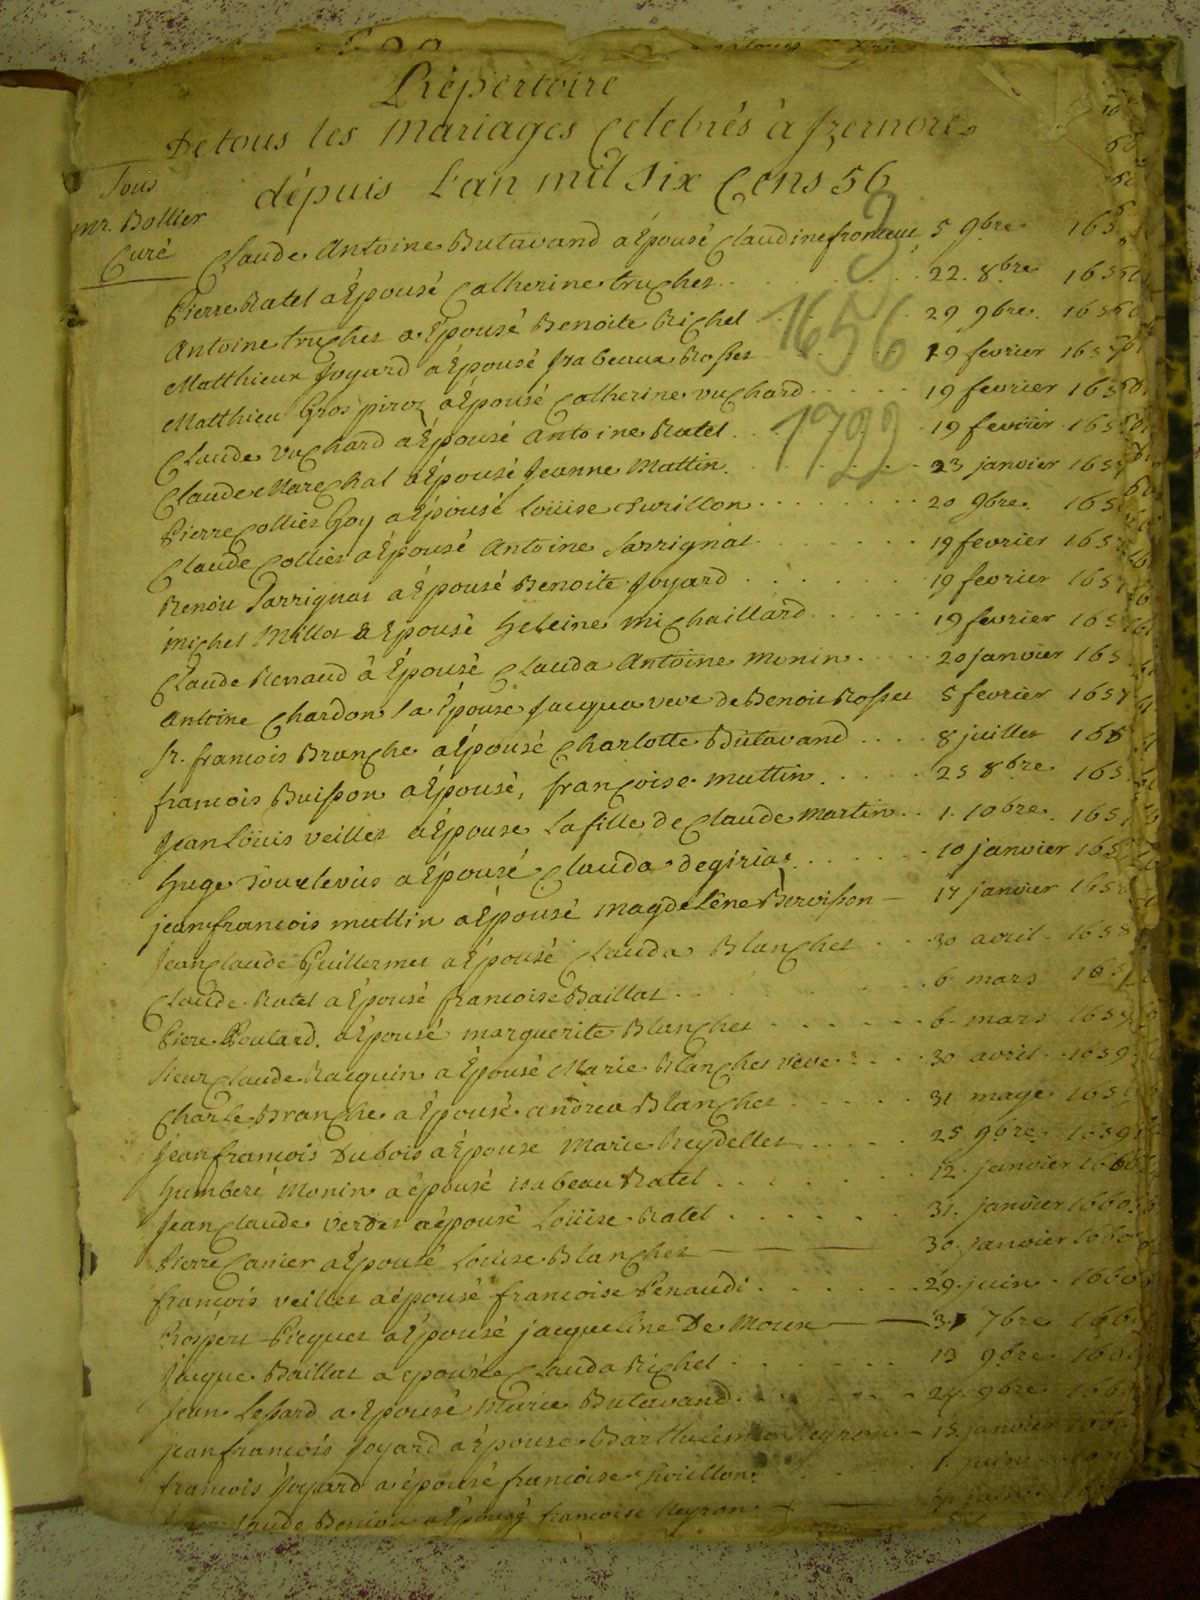 Répertoire
De tous les Mariages Celebrés à Izernore
dépuis L'an mil Six Cens 56
Tous
mr. Bollier
Curé
3
1656
1722
Claude Antoine Butavand a Epousé Claudine 5 9bre 165
Pierre Ratel a Epousé Catherine truchet 22. 8bre 165
Antoine truchet a Epousé Benoite Richel 29 9bre. 165
Matthieux Joyard a Epousé Isabeaux Rosset 19 fevrier 165
Matthieu Gros piroz a Epousé Catherine vuchard 19 fevrier 165
Claude vuchard a Epousé Antoine Ratel 19 fevrier 165
Claude Marechal a Epousé Jeanne Mattin 23 janvier 165
Pierre Collies Goy a Epousé Loüise Surillon 20 9bre. 165
Claude Collies a Epousé Antoine Sarrignat 19 fevrier 165
Benoit Sarrignat a Epousé Benoite Joyard 19 fevrier 165
Michel Millot a Epousé Heleine Michaillard 19 fevrier 165
Claude Renaud a Epousé Clauda Antoine Monin 20 janvier 165
Antoine Chardon a Epouse Jacqua veve de Benoit Rosset 5 fevrier 1657
Sr. francois Branche a Epousé Charlotte Butavand 8 juillet 165
francois Buisson a Epousé, françoise Mattin 25 8bre 165
Jean Loüis veillet a Epouse La fille de Claude Martin 1. 10bre. 165
Huge a Epousé Clauda degiriat 10 janvier 165
jean francois mattin a Epousé Magdeléne 17 janvier 1658
Jean Claude Guillermet a Epousé Clauda Blanchet 30 avril 1658
Claude Ratel a Epousé francoise Baillat 6 mars 165
Piere Poulard a Epousé marguerite Blanchet 6 mars 165
Sieur Claude Racquin a Epousé Marie Blanchet veve 30 avril 1659
Charle Branche a Epousé andrea Blanchet 31 maye 165
Jean francois Dubois a Epouse Marie Reydellet 25 9bre 1659
Humbert Monin a épousé isabeau Ratel 12. janvier 1660
Jean Claude verdet a épousé Loüise Ratel 31. janvier 1660
Pierre Canier a Epousé Louise Blanchet 30 janvier 1660
françois veillet a épousé francoise Penaudi 29 juin 1660
Prospert Picquet a Epousé jacqueline De Moux 3 7bre 166
Jacque Baillat a epousée Clauda Richel 13 9bre 166
Jean Lessard a Epousé Marie Butavand 24 9bre 166
jean francois Joyard a Epouse Reyron 15 janvier
francois Joyard a épousé francoise Surillon 1.
Claude a Epousé francoise Reyron